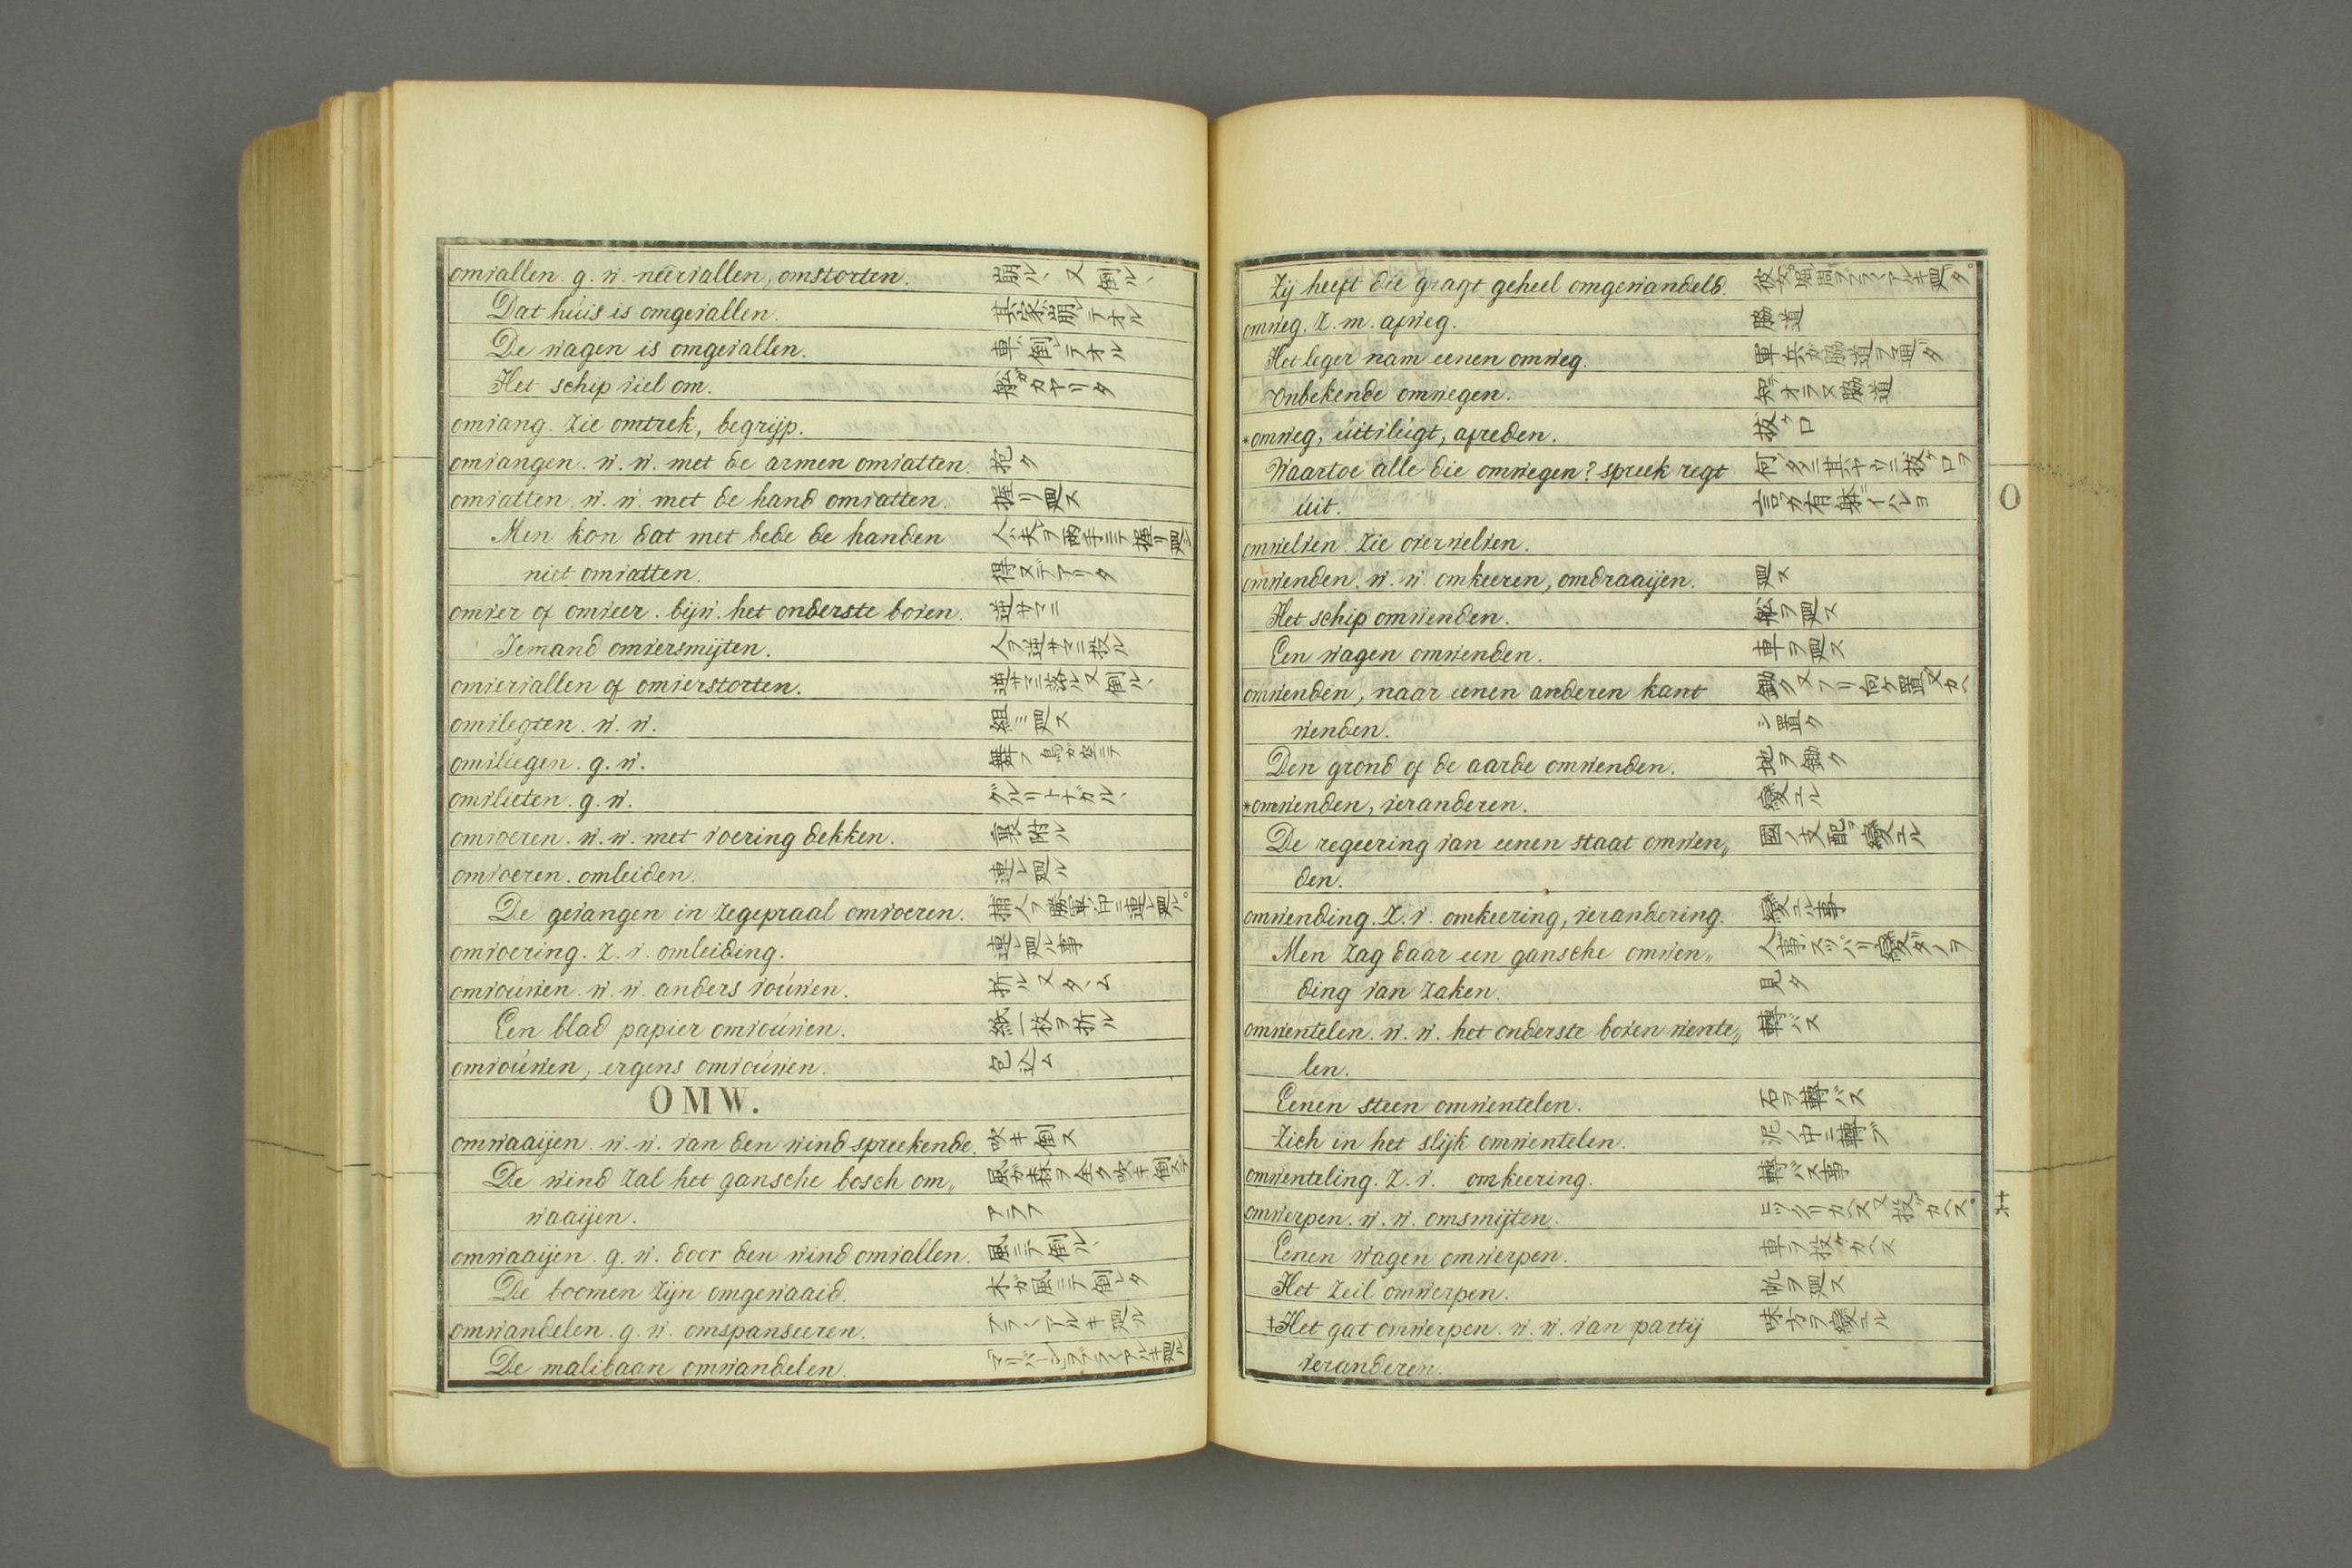 omvallen. g. w. neêrvallen, omstorten. 崩ル、又倒ル、
Dat húis is omgevallen. 其家ガ崩レテオル
De wagen is omgevallen. 車ガ倒レテオル
Het schip viel om. 舩ガカヤリタ
omvang. zie omtrek, begrijp.
omvangen. w. w. met de armen omvatten. 抱ク
omvatten. w. w. met de hand omvatten. 握リ廻ス
Men kon dat met bede de handen 人ガ夫ヲ両手ニテ握リ廻シ
niet omvatten. 得ヌデアリタ
omver of omveer. bijw. het onderste boven. 逆サマニ
Iemand omversmijten. 人ヲ逆サマニ投ル
omvervallen of omverstorten. 逆サマニ落ル又倒ル、
omvlegten. w. w. 組ミ廻ス
omvliegen. g. w. 舞フ 鳥ガ空ニテ
omvlieten. g. w. グルリトナガル、
omvoeren. w. w. met voering dekken. 裏附ル
omvoeren. omleiden. 連レ廻ル
De gevangen in zegepraal omvoeren. 捕人ヲ勝軍ノ中ニ連レ廻ル。
omvoering. z. v. omleiding. 連レ廻ル事
omvoúwen. w. w. anders voúwen. 折ル又タヽム
Een blad papier omvoúwen. 紙一枚ヲ折ル
omvoúwen, ergens omvoúwen. 包込ム
OMW.
omwaaijen. w. w. van den wind spreekende. 吹キ倒ス
De wind zal het gansche bosch om„ 風ガ森ヲ全ク吹キ倒スデ
waaijen. アラフ
omwaaijen. g. w. door den wind omvallen. 風ニテ倒ル、
De boomen zijn omgewaaid. 木ガ風ニテ倒レタ
omwandelen. g. w. omspanseeren. ブラ〱アルキ廻ル
De malibaan omwandelen. マリバーンヲブラ〱アルキ廻ル
Zij heeft die gragt geheel omgewandeld.
omweg. z. m. afweg. 脇道
Het leger nam eenen omweg. 軍兵ガ脇道ヲ通タ
Onbekende omwegen. 知レオラヌ脇道
*omweg, úitvlúgt, afreden. 抜ケ口
Waartoe alle die omwegen? spreek regt 何ノタメニ其ヤウニ抜ケ口ヲ
úit.
omwelven. zie overwelven.
omwenden. w. w. omkeeren, omdraaijen. 廻ス
Het schip omwenden. 舩ヲ廻ス
Een wagen omwenden. 車ヲ廻ス
omwenden, naar eenen anderen kant
wenden. シ置ク
Den grond of de aarde omwenden. 地ヲ鋤ク
*omwenden, veranderen. 變ユル
De regeering van eenen staat omwen„ 國ノ支配ヲ變ユル
den.
omwending. z. v. omkeering, verandering. 變ユル事
Men zag daar een gansche omwen„
ding van zaken. 見タ
omwentelen. w. w. het onderste boven wente„ 轉バス
len.
Eenen steen omwentelen. 石ヲ轉バス
Zich in het slijk omwentelen. 泥ノ中ニ轉ブ
omwenteling. z. v. omkeering. 轉バス事
omwerpen. w. w. omsmijten. ヒックリカヘス又投ゲカヘス。
Eenen wagen omwerpen. 車ヲ投ゲカヘス
Het zeil omwerpen. 帆ヲ廻ス
‡Het gat omwerpen. w. w. van partij 味方ヲ變ユル
veranderen.
O